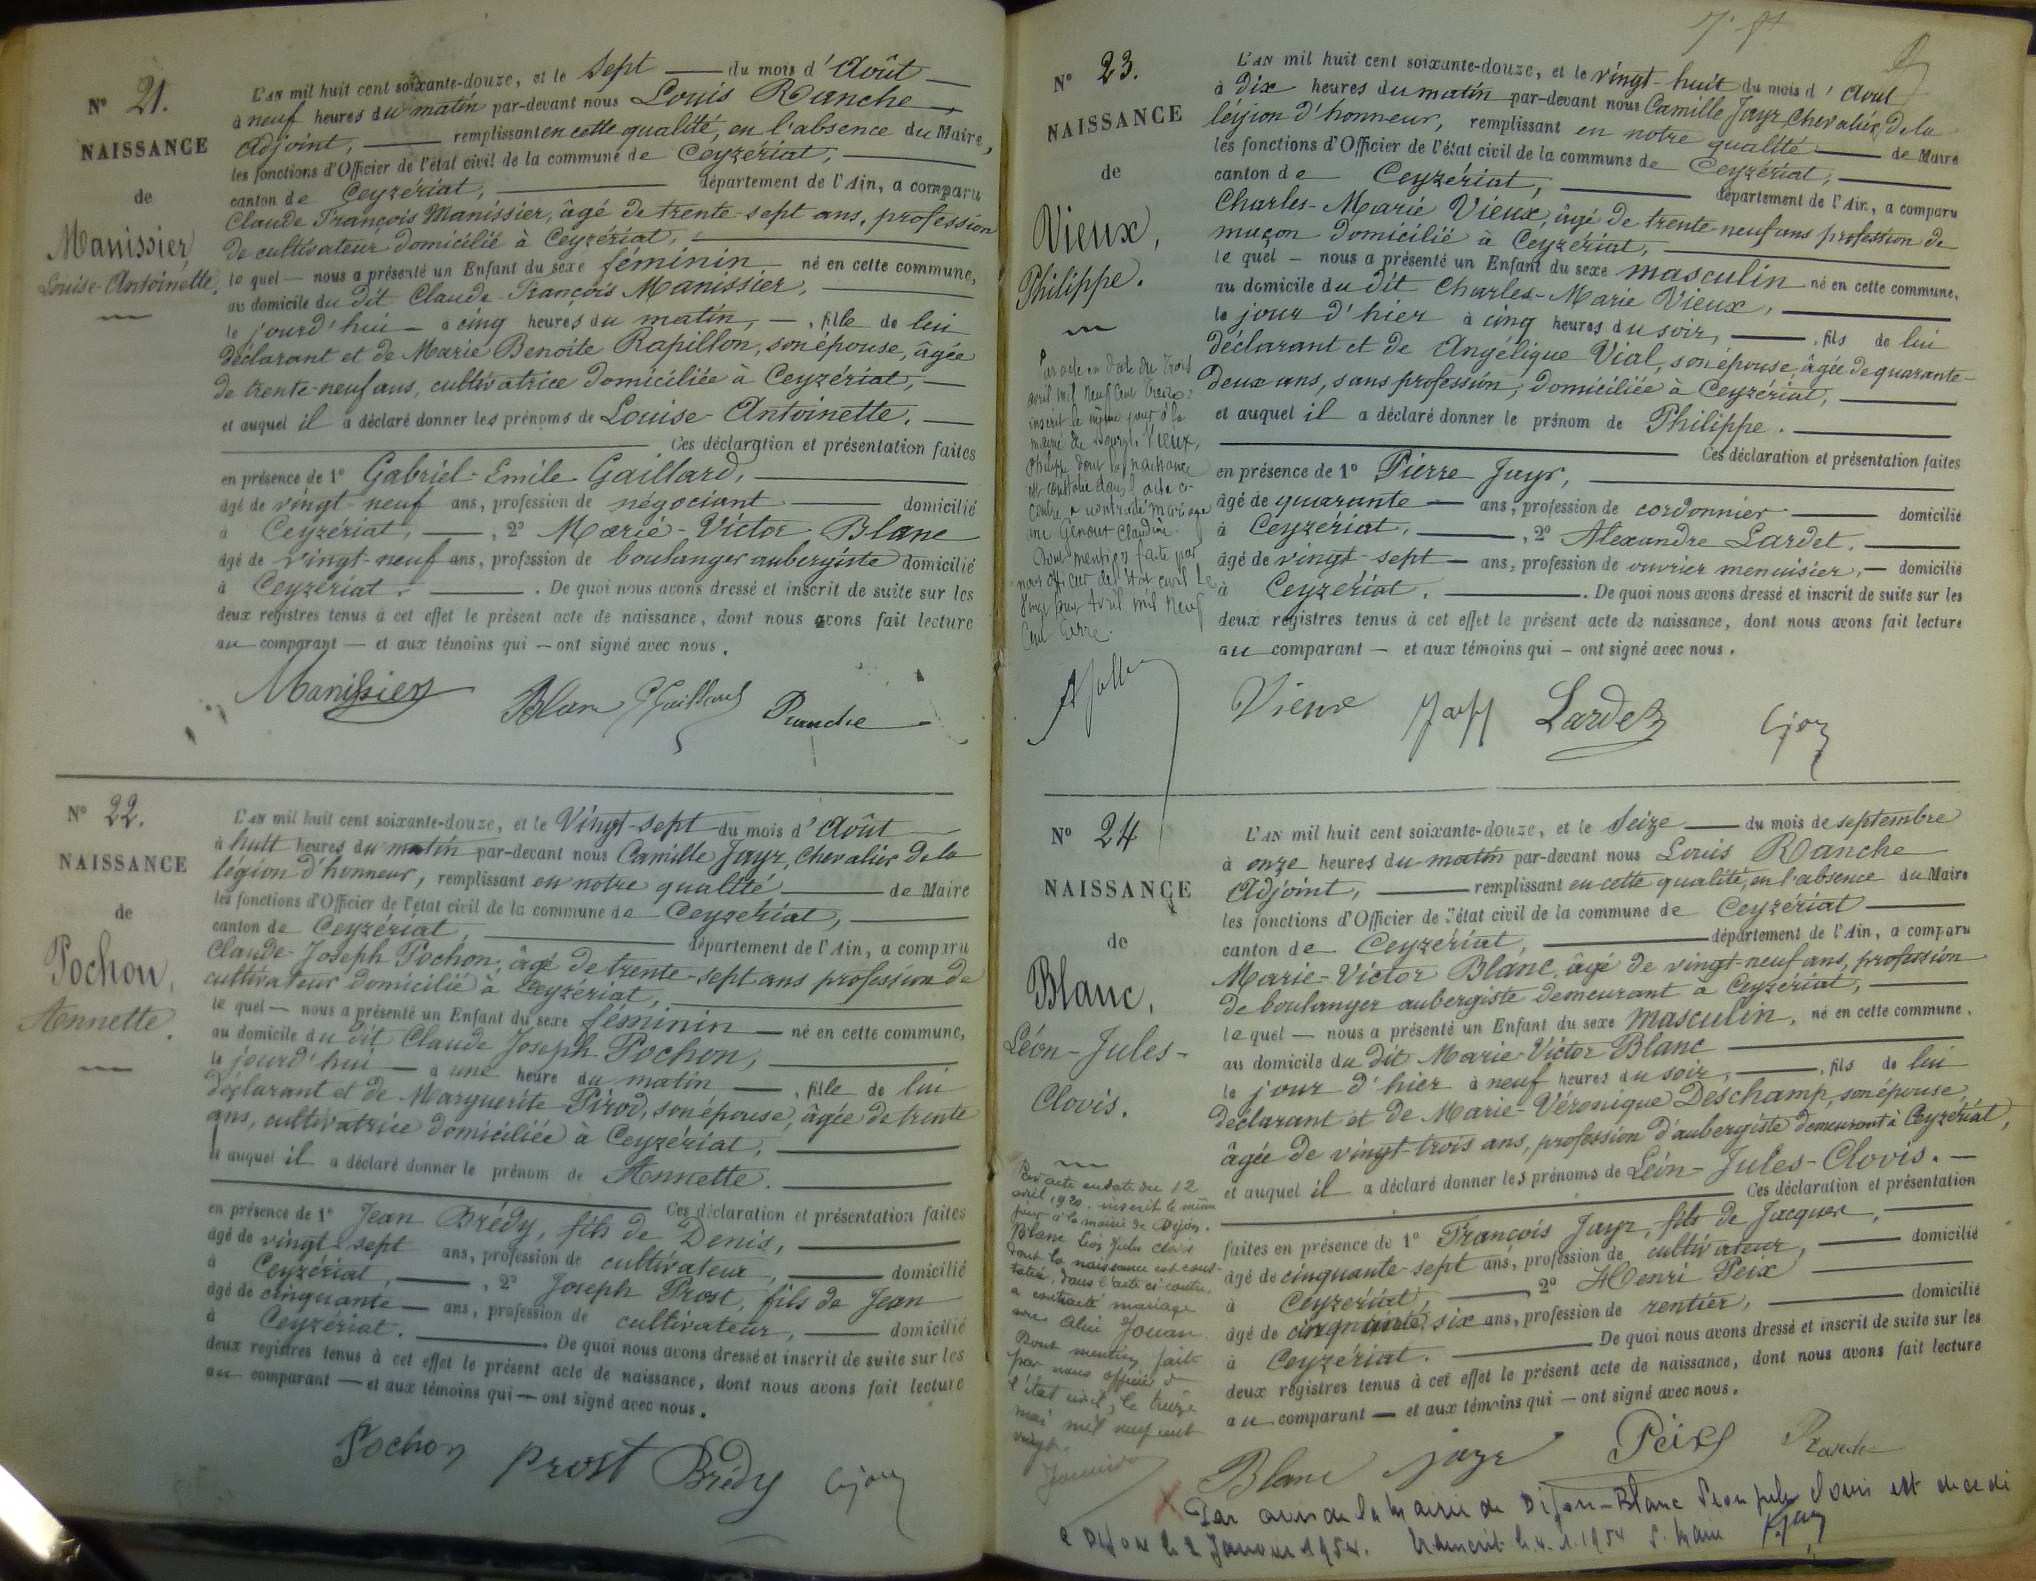 N° 21.
NAISSANCE
de
Manissier
Louise-Antoinette.
L'AN mil huit cent soixante-douze, et le Sept du mois d'Août
à neuf heures du matin par-devant nous Louis Ranche,
Adjoint, remplissant en cette qualité, en l'absence du Maire,
les fonctions d'Officier de l'état civil de la commune de Ceyzériat,
canton de Ceyzériat, département de l'Ain, a comparu
Claude François Manissier, âgé de trente-sept ans, profession
de cultivateur domicilié à Ceyzériat,
le quel — nous a présenté un Enfant du sexe féminin né en cette commune,
au domicile du dit Claude-François Manissier,
le jourd'hui — à cinq heures du matin, —, fille de lui
déclarant et de Marie Benoite Rapillon, son épouse, âgée
de trente-neuf ans, cultivatrice domiciliée à Ceyzériat,
et auquel il a déclaré donner les prénoms de Louise-Antoinette.
Ces déclaration et présentation faites
en présence de 1° Gabriel-Emile Gaillard,
âgé de vingt-neuf ans, profession de négociant domicilié
à Ceyzériat, 2° Marie-Victor Blanc
âgé de vingt-neuf ans, profession de boulanger aubergiste domicilié
à Ceyzériat. De quoi nous avons dressé et inscrit de suite sur les
deux registres tenus à cet effet le présent acte de naissance, dont nous avons fait lecture
au comparant — et aux témoins qui — ont signé avec nous.
Manissier Blanc G Gaillard Ranche
N° 22.
NAISSANCE
de
Pochon,
Annette.
L'AN mil huit cent soixante-douze, et le Vingt-sept du mois d'Août
à huit heures du matin par-devant nous Camille Jayr, Chevalier de la
légion d'honneur, remplissant en notre qualité de Maire
les fonctions d'Officier de l'état civil de la commune de Ceyzériat,
canton de Ceyzériat, département de l'Ain, a comparu
Claude-Joseph Pochon, âgé de trente-sept ans profession de
cultivateur domicilié à Ceyzériat,
le quel — nous a présenté un Enfant du sexe féminin — né en cette commune,
au domicile du dit Claude Joseph Pochon,
le jourd'hui — à une heure du matin —, fille de lui
déclarant et de Marguerite Pirod, son épouse, âgée de trente
ans, cultivatrice domiciliée à Ceyzériat,
et auquel il a déclaré donner le prénom de Annette.
Ces déclaration et présentation faites
en présence de 1° Jean Brédy, fils de Denis,
âgé de vingt-sept ans, profession de cultivateur, domicilié
à Ceyzériat, 2° Joseph Prost, fils de Jean
âgé de cinquante — ans, profession de cultivateur, domicilié
à Ceyzériat. De quoi nous avons dressé et inscrit de suite sur les
deux registres tenus à cet effet le présent acte de naissance, dont nous avons fait lecture
au comparant — et aux témoins qui — ont signé avec nous.
Pochon Prost Brédy
N° 23.
NAISSANCE
de
Vieux,
Philippe.
Par acte en date du trois
avril mil neuf cent treize
inscrit le même jour à la
mairie de Vieux,
Philippe dont la naissance
est constatée dans l'acte ci-
contre, a contracté mariage
avec Genout Claudine.
Dont mention faite par
nous officier de l'état civil le
avril mil neuf
cent treize.
L'AN mil huit cent soixante-douze, et le vingt-huit du mois d'Août
à dix heures du matin par-devant nous Camille Jayr, Chevalier de la
légion d'honneur, remplissant en notre qualité de Maire
les fonctions d'Officier de l'état civil de la commune de Ceyzériat,
canton de Ceyzériat, département de l'Ain, a comparu
Charles-Marie Vieux, âgé de trente-neuf ans profession de
maçon domicilié à Ceyzériat,
le quel — nous a présenté un Enfant du sexe masculin né en cette commune,
au domicile du dit Charles-Marie Vieux,
le jour d'hier à cinq heures du soir, fils de lui
déclarant et de Angélique Vial, son épouse, âgée de quarante-
deux ans, sans profession, domiciliée à Ceyzériat,
et auquel il a déclaré donner le prénom de Philippe.
Ces déclaration et présentation faites
en présence de 1° Pierre Jayr,
âgé de quarante — ans, profession de cordonnier domicilié
à Ceyzériat, 2° Alexandre Lardet,
âgé de vingt-sept — ans, profession de ouvrier menuisier, — domicilié
à Ceyzériat. De quoi nous avons dressé et inscrit de suite sur les
deux registres tenus à cet effet le présent acte de naissance, dont nous avons fait lecture
au comparant — et aux témoins qui — ont signé avec nous.
Vieux Jayr Lardet
N° 24
NAISSANCE
de
Blanc,
Léon-Jules-
Clovis.
Par acte en date du 12
avril 1920, inscrit le même
jour à la mairie de Dijon,
Blanc Léon Jules Clovis
dont la naissance est cons-
tatée dans l'acte ci-contre,
a contracté mariage
avec Jouan.
Dont mention faite
par nous officier de
l'état civil, le treize
mai mil neuf cent
vingt.
L'AN mil huit cent soixante-douze, et le Seize du mois de septembre
à onze heures du matin par-devant nous Louis Ranche
Adjoint, remplissant en cette qualité, en l'absence du Maire
les fonctions d'Officier de l'état civil de la commune de Ceyzériat
canton de Ceyzériat, département de l'Ain, a comparu
Marie-Victor Blanc, âgé de vingt-neuf ans, profession
de boulanger aubergiste demeurant à Ceyzériat,
le quel — nous a présenté un Enfant du sexe masculin, né en cette commune,
au domicile du dit Marie-Victor Blanc
le jour d'hier à neuf heures du soir, fils de lui
déclarant et de Marie-Véronique Deschamp, son épouse,
âgée de vingt-trois ans, profession d'aubergiste demeurant à Ceyzériat,
et auquel il a déclaré donner les prénoms de Léon-Jules-Clovis. —
Ces déclaration et présentation
faites en présence de 1° François Jayr, fils de Jacques,
âgé de cinquante-sept ans, profession de cultivateur, domicilié
à Ceyzériat 2° Henri Peix
âgé de cinquante six ans, profession de rentier, domicilié
à Ceyzériat. De quoi nous avons dressé et inscrit de suite sur les
deux registres tenus à cet effet le présent acte de naissance, dont nous avons fait lecture
au comparant — et aux témoins qui — ont signé avec nous.
Blanc Jayr Peix Ranche
Par avis de la Mairie de Dijon - Blanc Léon Jules Clovis est décédé
à Dijon le 2 Janvier 1954. Transcrit le 4.1.1954 Le Maire